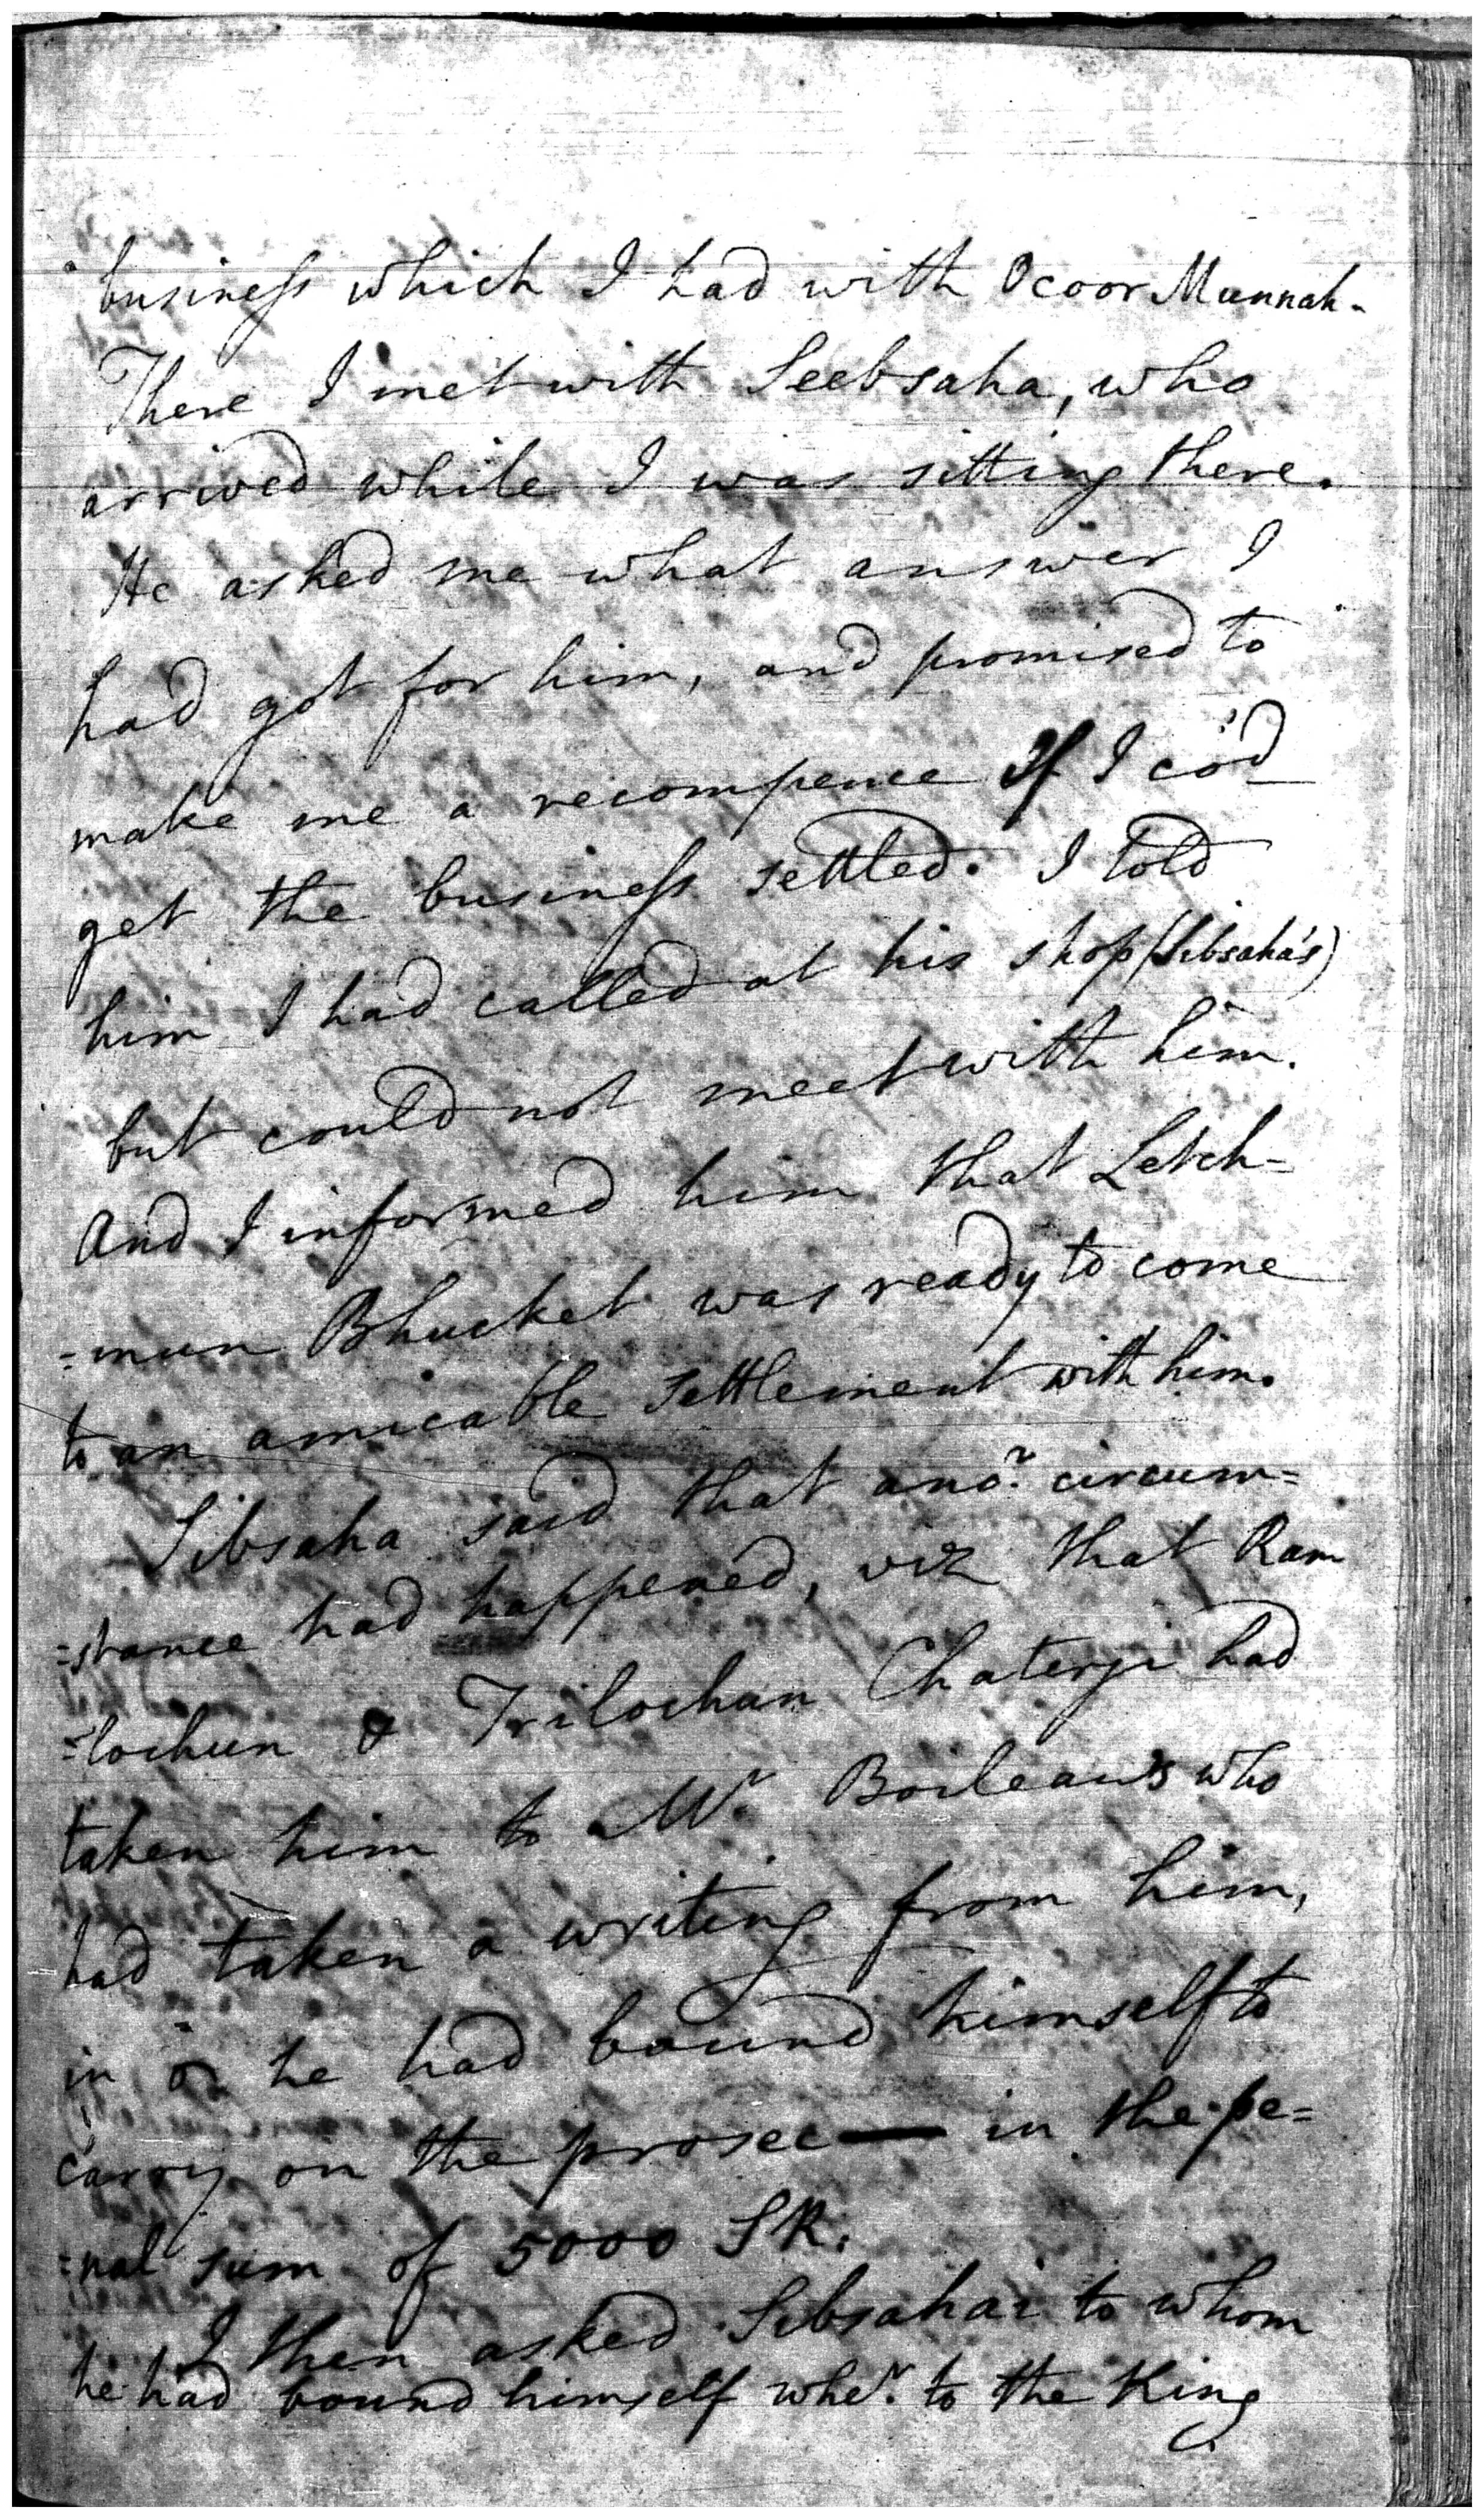 business which I had with Ocoor Munnah-
There I met with Seebsaha, who
arrived while I was sitting there.
He asked me what answer I
had got for him, and promised to
make me a recompence If I co'd
get the business settled. I told
him I had called at his shop (Sibsaha's)
but could not meet with him.
And I informed him that Letch=
=mun Bhucket was ready to come
to an amicable settlement with him.
Sibsaha said that anor. circum=
=stance had happened, viz that Ram
=lochun & Trilochun Chaterji had
taken him to Mr. Boileau's who
had taken a writing from him,
in he had bound himself to
carry on the prosec— in the pe=
=nal sum of 5000 SR.
I then asked Sibsahai to whom
he had bound himself wher. to the King